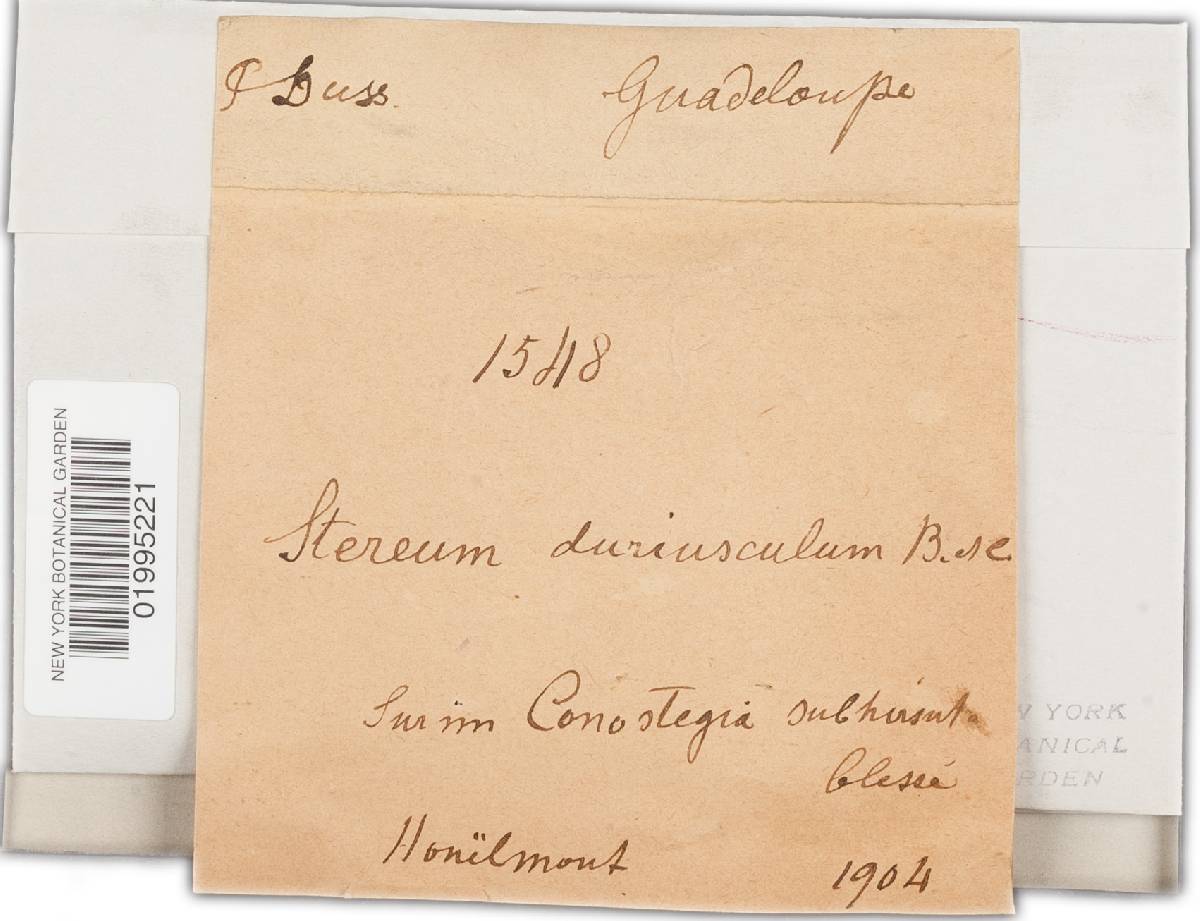 P Duss. Guadeloupe
1548
Stereum duriusculum B. et C.
Sur un Conostegia subhirsuta
blessé
Houëlmont 1904
NEW YORK BOTANICAL GARDEN
01995221
W YORK
ANICAL
RDEN